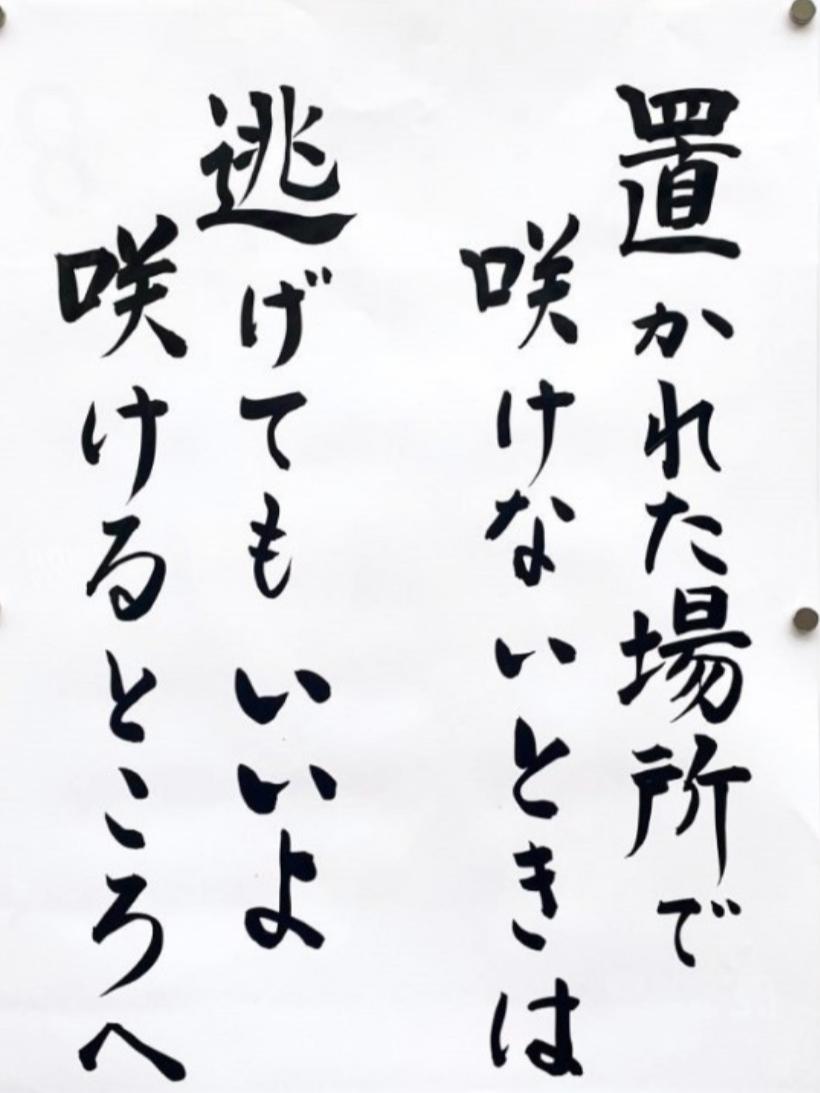 置かれた場所で
咲けないときは
逃げても いいよ
咲けるところへ